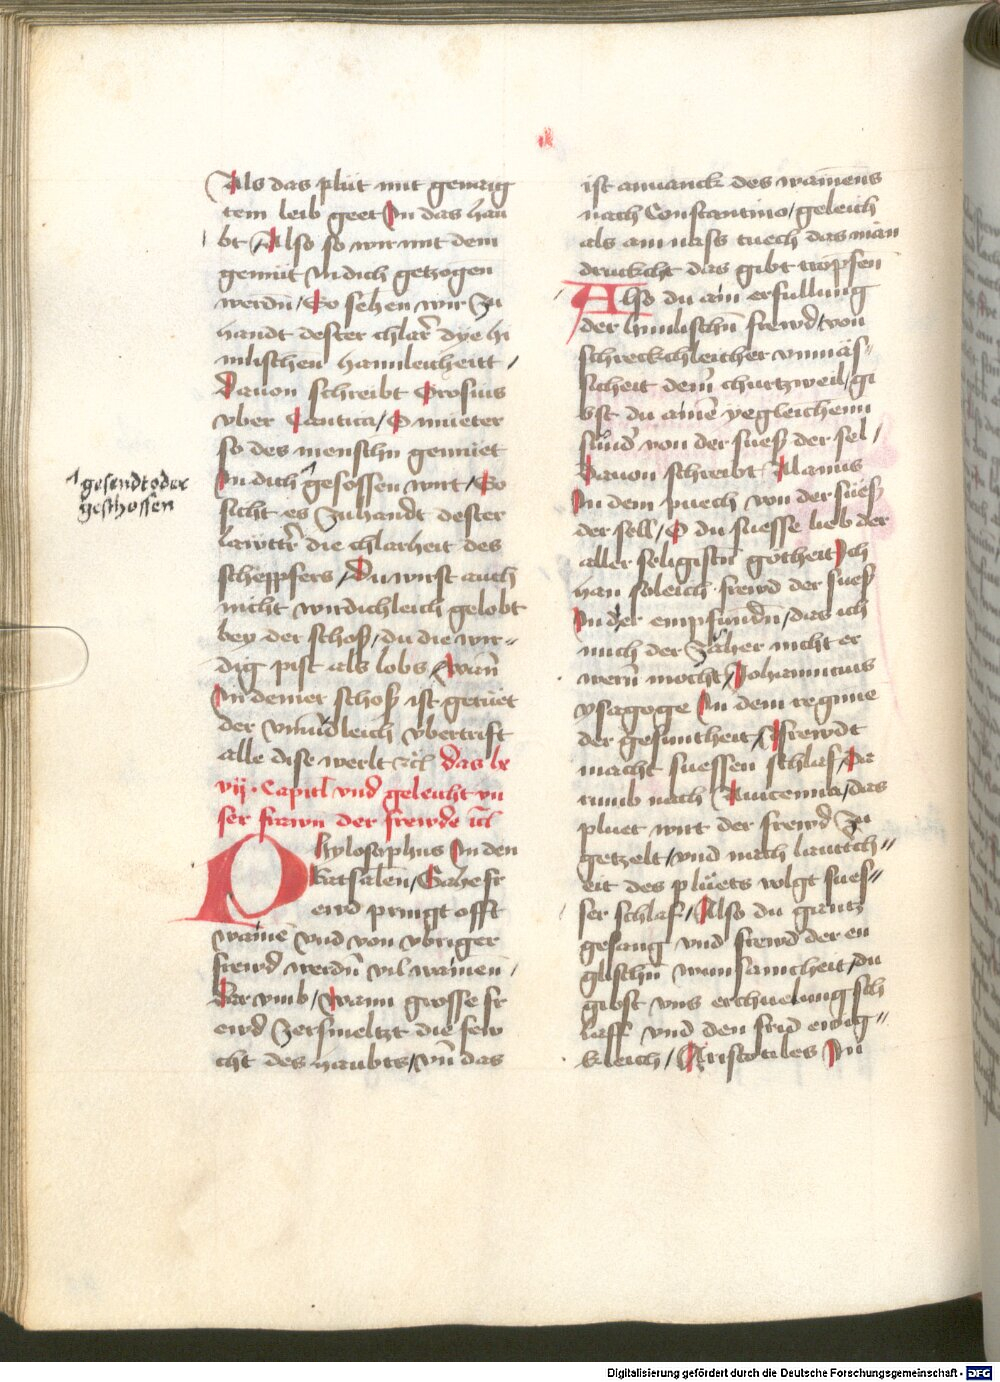 Als das plut mit genaig
tem leib geet In das hau
bt / Also so wir mit dem
gemut In dich getzogen
werdn̄ / So sehen wir Zu
handt dester chlar̄ dye hi
mlischen haimleicheitt /
Dauon schreibt Orosius
vber Cantica / O mueter
so des menschn gemuet
In dich ^ gesossen wirt / So
^ gesendt oder
geschossen
sicht es Zuhandt dester
lawttr̄ die chlarheit des
scheppfers / Du wirst auch
nicht wirdichleich gelobt
bey der schoß / du die wir=
dig pist als lobs / wan̄
In deiner schoß ist geruet
der vnentleich vbertrift
alle dise werlt etc̄ das lx
vij · Capitl vnd geleicht vn
ser frawn der frewde etc̄
Phylosophus In den
Ratsalen / Gahe fr
ewd pringt offt
waine vnd von vbriger
frewd werdn̄ vil wainen /
Dar vmb / Wann grosse fr
ewd Zersmeltzt die few
cht des haubts / vn̄ das
ist ain anck des wainens
nach Constantino / geleich
als ain nass tuech das man
druckcht das gibt tropfen
Also du ain erfullung
der himlischn̄ frewd / von
schreckchleicher vnmäs=
sicheit dem̄ churtzweil / gi
bst du aine yegleichenn
sund von der sueß der sel /
Dauon schreibt Alanus
In dem puech von der süeß
der sell / O du suesse lieb der
aller seligistn̄ gotheit Ich
han soleich frewd der sueß
In der empfundn̄ / das ich
mich der Zäher nicht er
wern mocht / Johannicius
ysagoge In dem regime
der gesuntheit / frewdt
macht suessen schlaf / Da
rumb nach Auicenna / das
pluet wirt der frewd Zu
getzelt / vnd nach lautich=
eit des pluets volgt sues=
ser schlaf / Also du gantz
gesang vnd frewd der en
glischn̄ wunsamcheit / du
gibst vns erchuelung sch
laff vnd den frid ewig=
kleich / Aristotiles In
Digitalisierung gefördert durch die Deutsche Forschungsgemeinschaft - DFG